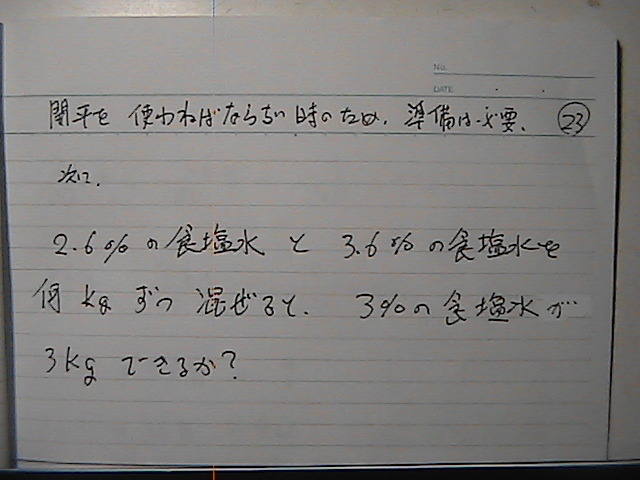 No.
DATE ・ ・
開平を 使わねばならない時のため、準備は必要。 ㉓
次に、
2.6%の食塩水と 3.6%の食塩水を
何kgずつ混ぜると、3%の食塩水が
3kgできるか?